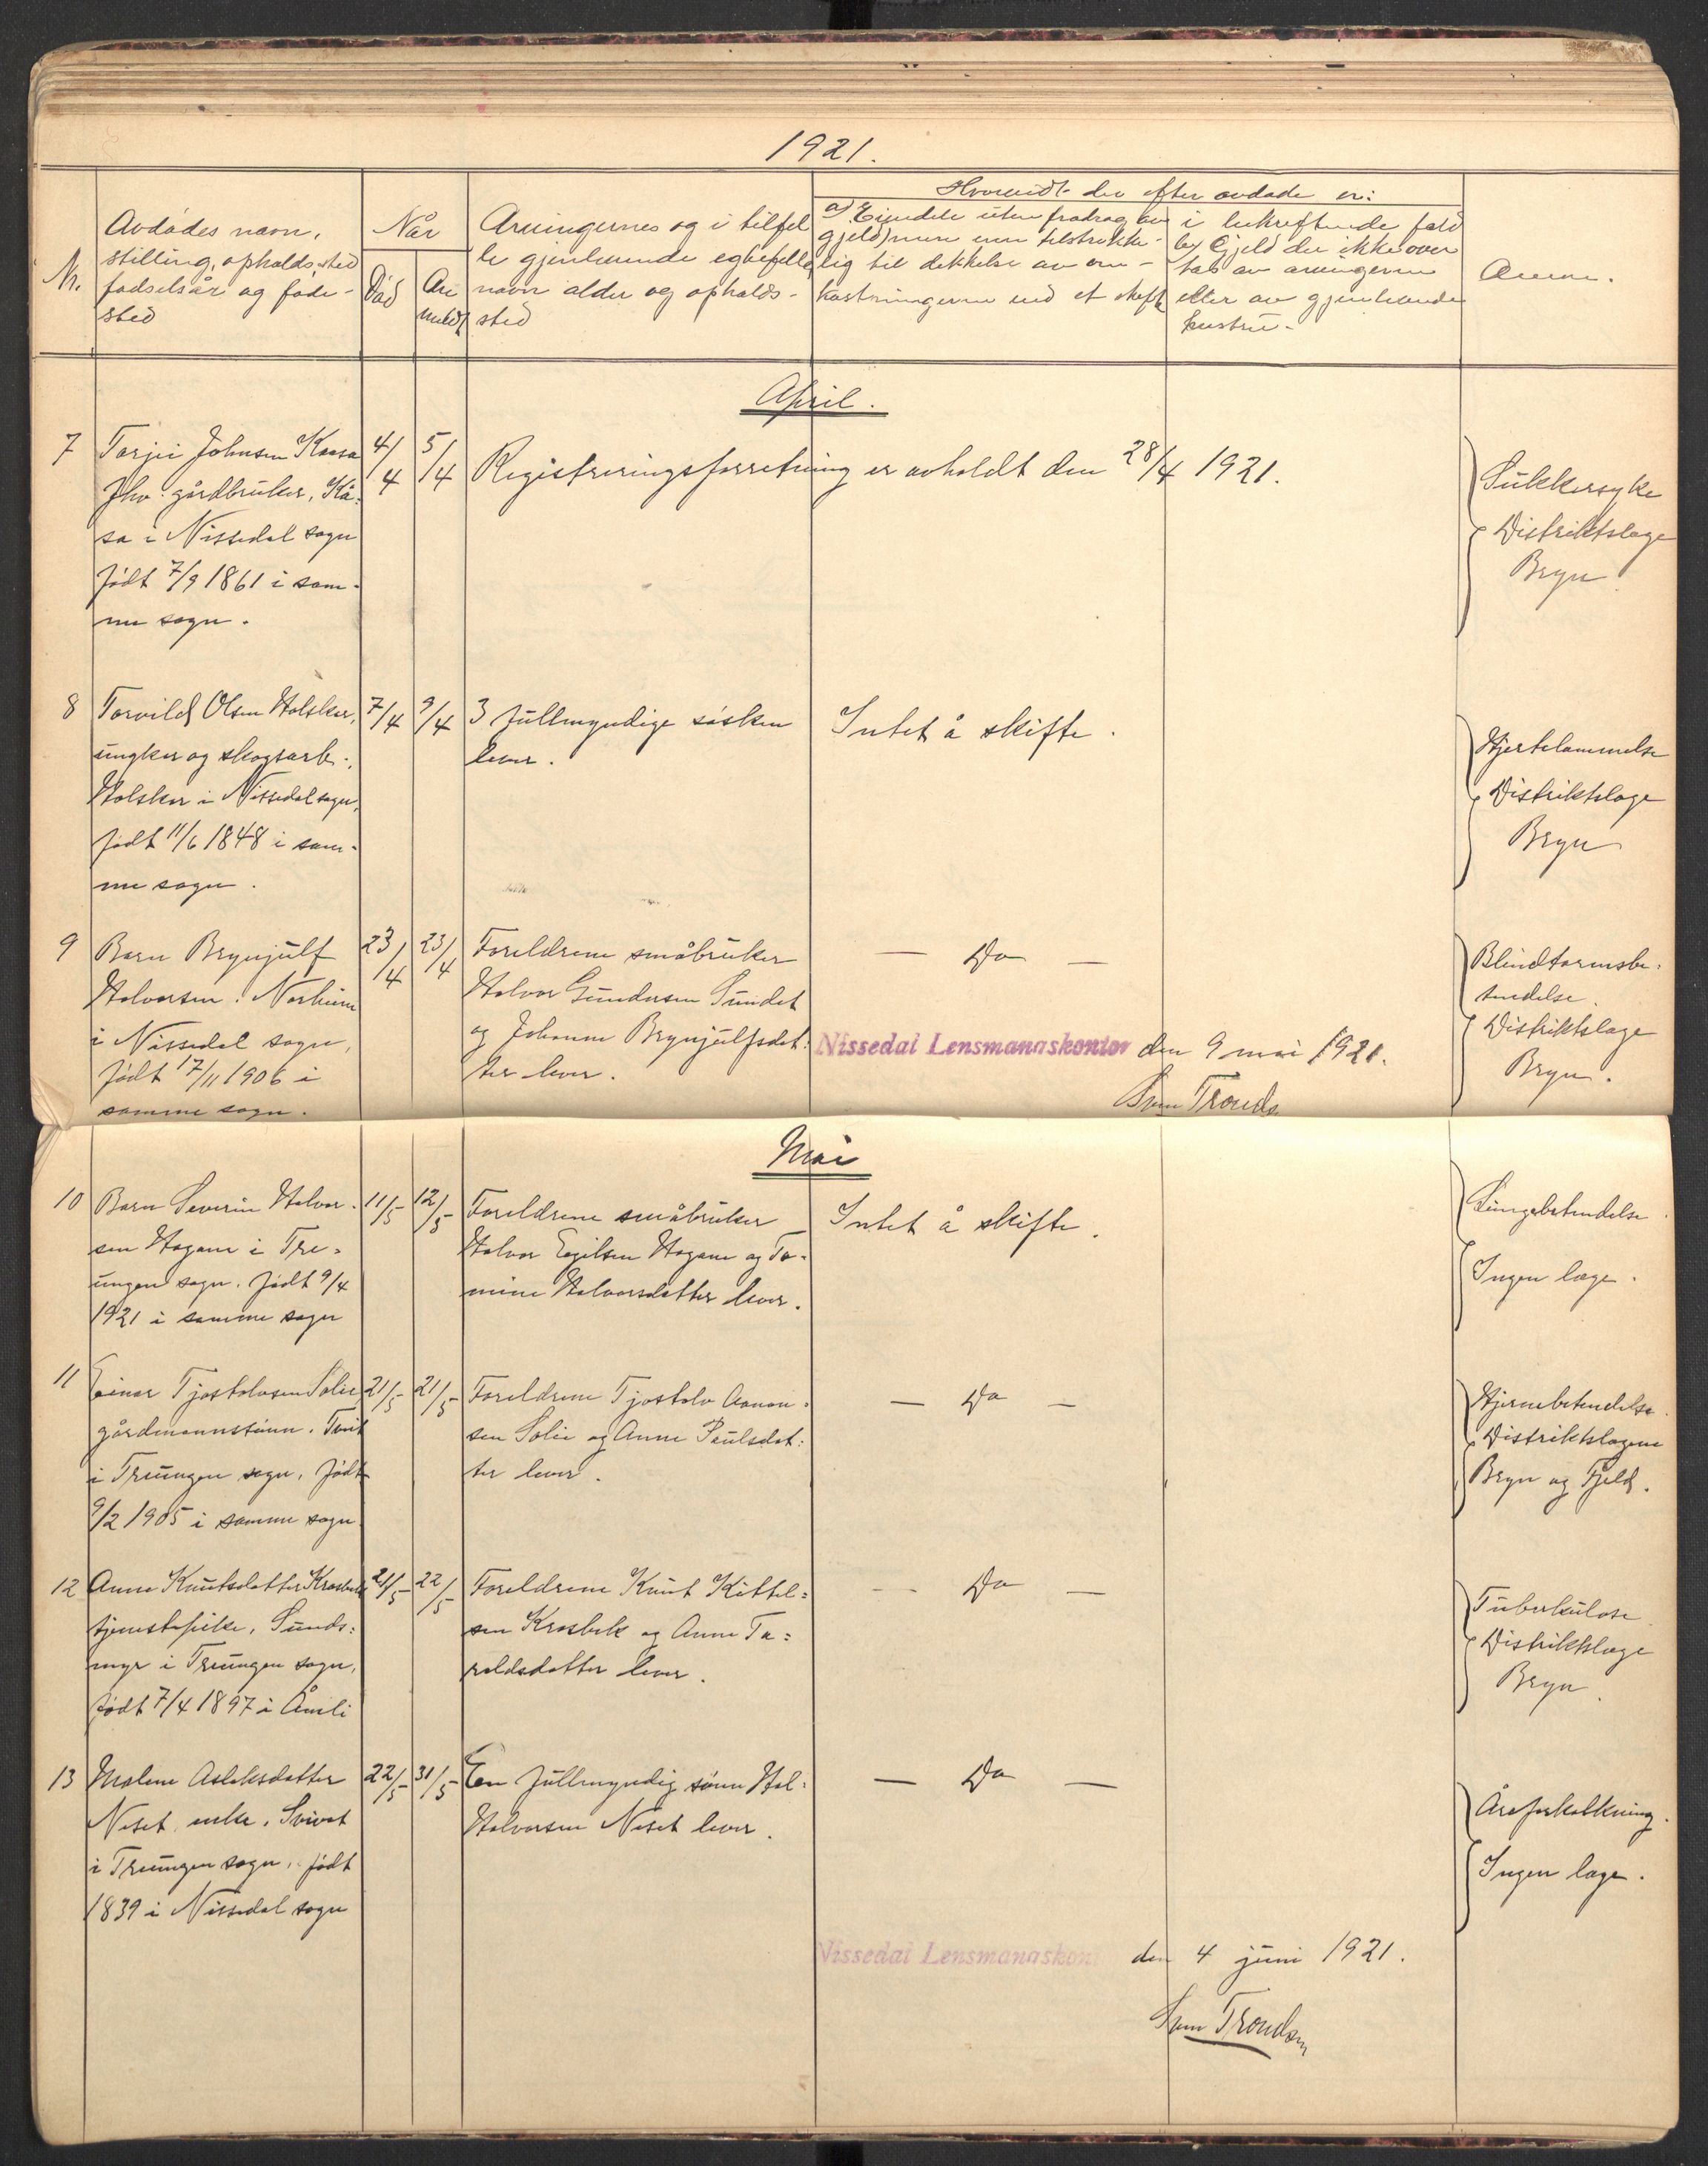 1921.
Nr.
Avdødes navn,
stilling, opholdssted
fødselsår og føde-
sted
Når
Død
An
meldt
Arvingernes og i tilfel
le gjenlevende egtefelle
navn alder og opholds-
sted
Hvorvidt der efter avdøde er:
a) Eiendele uten fradrag av
gjeld) mere enn tilstrekke-
lig til dekkelse av om-
kostningerne ved et skifte
i bekreftende fald
b) Gjeld der ikke over
tas av arvingerne
eller av gjenlevende
hustru.
Anm.
April.
7
Torjei Johnsen Kaasa
fhv. gårdbruker, Kå-
sa i Nissedal sogn
født 7/9 1861 i sam-
me sogn.
4/4
5/4
Registreringsforretning er avholdt den 28/4 1921.
Sukkersyke
Distriktslæge
Bryn
8
Torvild Olsen Holsker,
ungkar og skogsarb.,
Holsker i Nissedal sogn,
født 11/6 1848 i sam-
me sogn.
7/4
9/4
3 fullmyndige søsken
lever.
Intet å skifte.
Hjertelammelse
Distriktslæge
Bryn
9
Barn Brynjulf
Halvorsen. Norheim
i Nissedal sogn,
født 17/11 1906 i
samme sogn.
23/4
23/4
Foreldrene småbruker
Halvor Gundersen Sundet
og Johanne Brynjulfsdat:
ter lever.
— Do —
Blindtarmsbe:
tendelse.
Distriktslæge
Bryn.
Nissedal Lensmannskontor den 9 mai 1921.
Sven Tronds
Mai
10
Barn Severin Halvor-
sen Hagane i Tre-
ungen sogn. Født 9/4
1921 i samme sogn
11/5
12/5
Foreldrene småbruker
Halvor Egilsen Hagane og To-
mine Halvorsdatter lever.
Intet å skifte.
Lungebetendelse.
Ingen læge.
11
Einar Tjostolvsen Solie
gårdmannssønn. Tveit
i Treungen sogn, født
9/2 1905 i samme sogn.
21/5
21/5
Foreldrene Tjostolv Aanon-
sen Solie og Anne Paulsdat:
ter lever.
— Do —
Hjernebetendelse.
Distriktslægene
Bryn og Fjeld.
12
Anne Knutsdatter Krosbek
tjenestepike, Sunds:
myr i Treungen sogn,
født 7/4 1897 i Åmli
21/5
22/5
Foreldrene Knut Kittel:
sen Krosbek og Anne Ta:
raldsdatter lever.
— Do —
Tuberkulose
Distriktslæge
Bryn.
13
Malene Aslaksdatter
Neset, enke,
i Treungen sogn, født
1839 i Nissedal sogn
22/5
31/5
En fullmyndig sønn Hal:
Halvorsen Neset lever.
— Do —
Åreforkalkning.
Ingen læge.
Nissedal Lensmannskont den 4 juni 1921.
Sven Trondsen